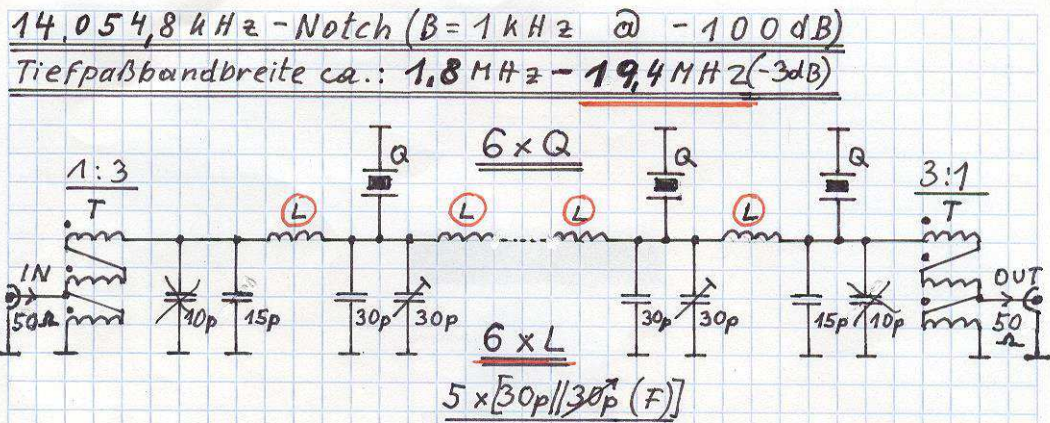 14.054,8 kHz - Notch (B = 1 kHz @ -100 dB)
Tiefpaßbandbreite ca.: 1,8 MHz - 19,4 MHz (-3dB)
6 x Q
1:3
T
L
Q
L
L
Q
L
Q
3:1
T
IN
50Ω
10p
15p
30p
30p
30p
30p
15p
10p
OUT
50
Ω
6 x L
5 x [30p||30p (F)]